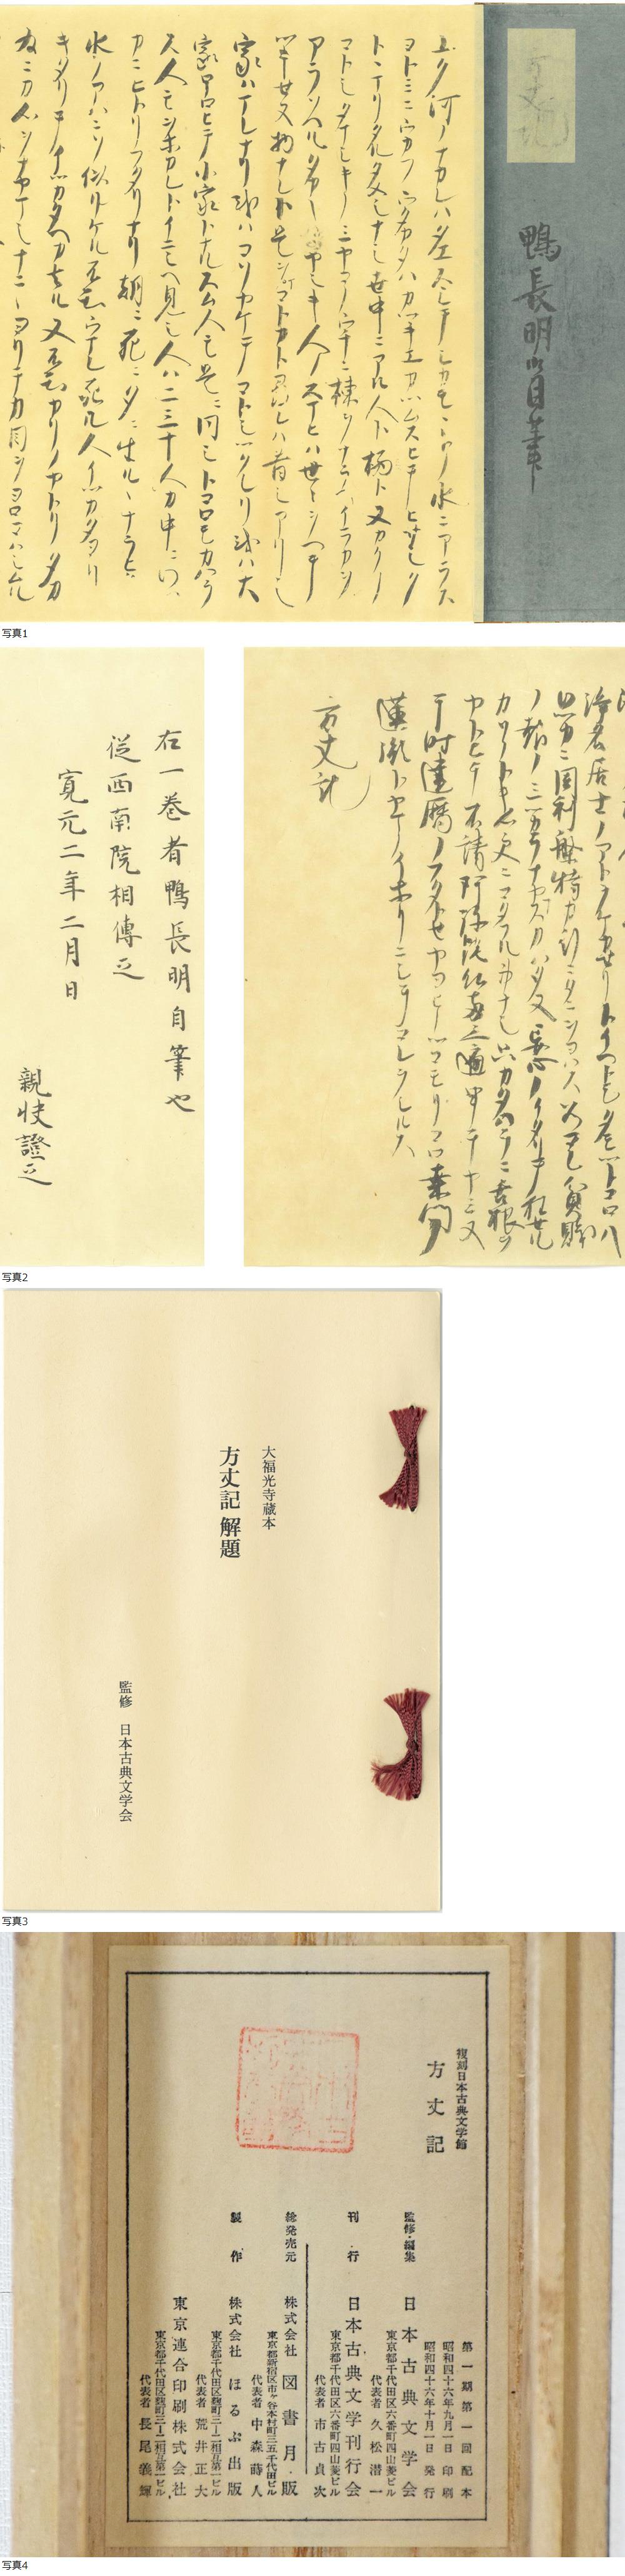 方丈記
鴨長明自筆
ユク河ノナカレハタエスシテシカモモトノ水ニアラス
ヨトミニウカフウタカタハカツキエカツムスヒテヒサシク
トヽマリタルタメシナシ世中ニアル人ト栖ト又カクノ
コトシタマシキノミヤコノウチニ棟ヲナラヘイラカヲ
アラソヘルタカキイヤシキ人ノスマヒハ世々ヲヘテ
ツキセヌ物ナレト是ヲマコトカト尋レハ昔シアリシ
家ハマレナリ或ハコソヤケテコトシツクレリ或ハ大
家ホロヒテ小家トナルスム人モ是ニ同シトコロモカハラ
ス人モヲホカレトイニシヘ見シ人ハ二三十人カ中ニワツ
カニヒトリフタリナリ朝ニ死ニ夕ニ生ルヽナラヒ
水ノアハニソ似リケル不知ウマレ死ル人イツカタヨリ
キタリテイツカタヘカ去ル又不知カリノヤトリタカ
為ニカ心ヲナヤマシナニヽヨリテカ目ヲヨロコハシムル
写真1
浄名居士ノアトヲケカセリトイヘトモタモツトコロハ
ワツカニ周利槃特カ行ニタニヲヨハス若コレ貧賤
ノ報ノミツカラナヤマスカハタ又妄心ノイタリテ狂セル
カソノトキ心更ニコタフル事ナシ只カタハラニ舌根ヲ
ヤトヒテ不請阿弥陀仏両三遍申テヤミヌ
于時建暦ノフタトセヤヨヒノツコモリコロ桑門ノ
蓮胤トヤマノイホリニシテコレヲシルス
方丈記
右一巻者鴨長明自筆也
従西南院相傳之
寛元二年二月日
親快證之
写真2
大福光寺蔵本
方丈記 解題
監修 日本古典文学会
写真3
複刻日本古典文学館
方丈記
第一期第一回配本
昭和四十六年九月一日印刷
昭和四十六年十月一日発行
監修・編集 日本古典文学会
東京都千代田区六番町四山菱ビル
代表者 久松潜一
刊行 日本古典文学刊行会
東京都千代田区六番町四山菱ビル
代表者 市古貞次
総発売元 株式会社 図書月販
東京都新宿区市ヶ谷本村町三五千代田ビル
代表者 中森蒔人
製作 株式会社 ほるぷ出版
東京都千代田区麹町三ー二相互第一ビル
代表者 荒井正大
東京連合印刷株式会社
東京都千代田区麹町三ー二相互第一ビル
代表者 長尾義輝
写真4